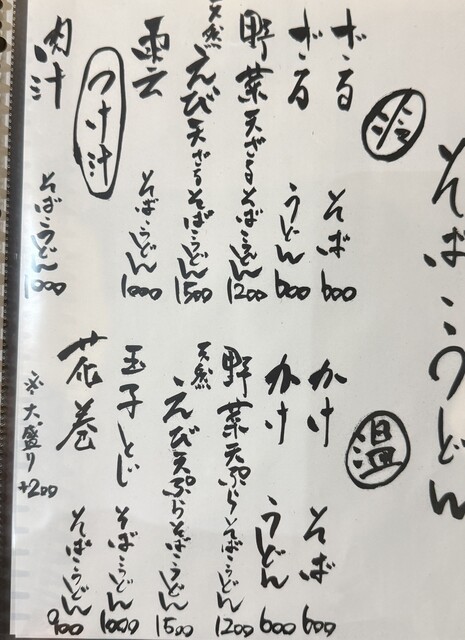 そば・うどん
冷
ざる そば 600
ざる うどん 600
野菜天ざるそば・うどん 1200
天然えび天ざるそば・うどん 1500
そば・うどん 1000
つけ汁
肉汁 そば・うどん 1000
温
かけ そば 600
かけ うどん 600
野菜天ぷらそば・うどん 1200
天然えび天ぷらそば・うどん 1500
玉子とじ そば・うどん 1000
花巻 そば・うどん 900
※大盛り +200